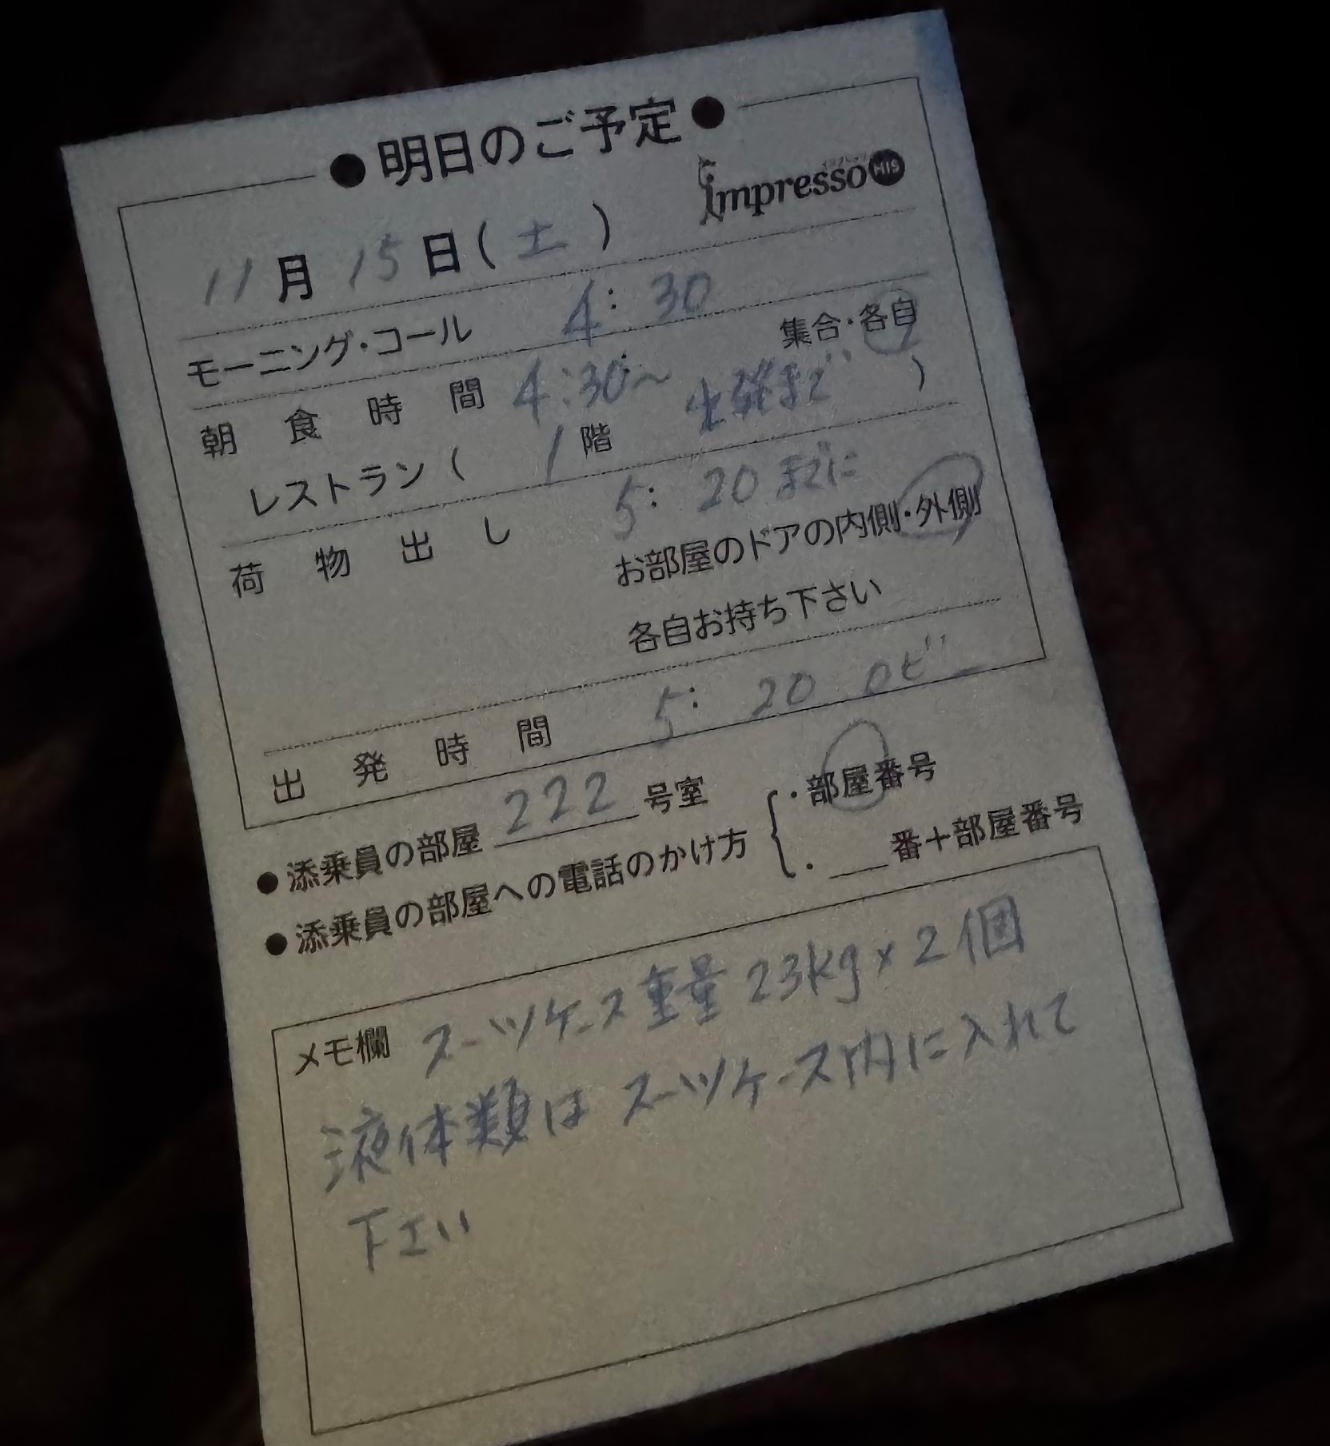 ●明日のご予定●
impresso HIS
11月15日(土)
モーニング・コール 4:30
朝食時間 4:30〜 集合・各自
レストラン( 1階 出発まで )
荷物出し 5:20までに
お部屋のドアの内側・外側
各自お持ち下さい
出発時間 5:20 ロビー
●添乗員の部屋 222 号室
●添乗員の部屋への電話のかけ方 { ・部屋番号
・___番+部屋番号
メモ欄 スーツケース重量 23kg×2個
液体類はスーツケース内に入れて
下さい